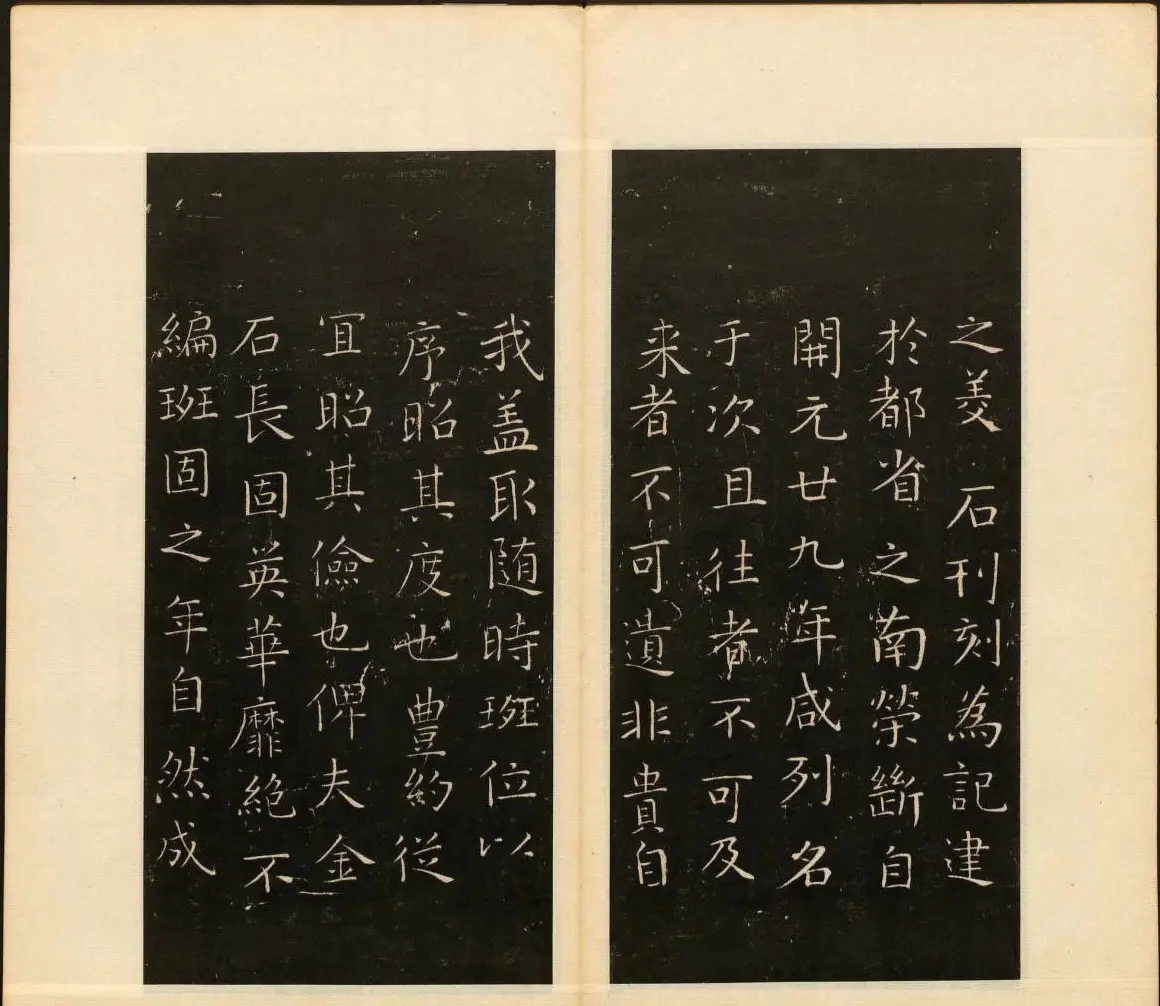 之美石刊刻為記建
於都省之南榮斷自
開元廿九年咸列名
于次且往者不可及
来者不可遺非貴自
我盖取随時班位以
序昭其度也豊約從
宜昭其儉也俾夫金
石長固英華靡絶不
編班固之年自然成